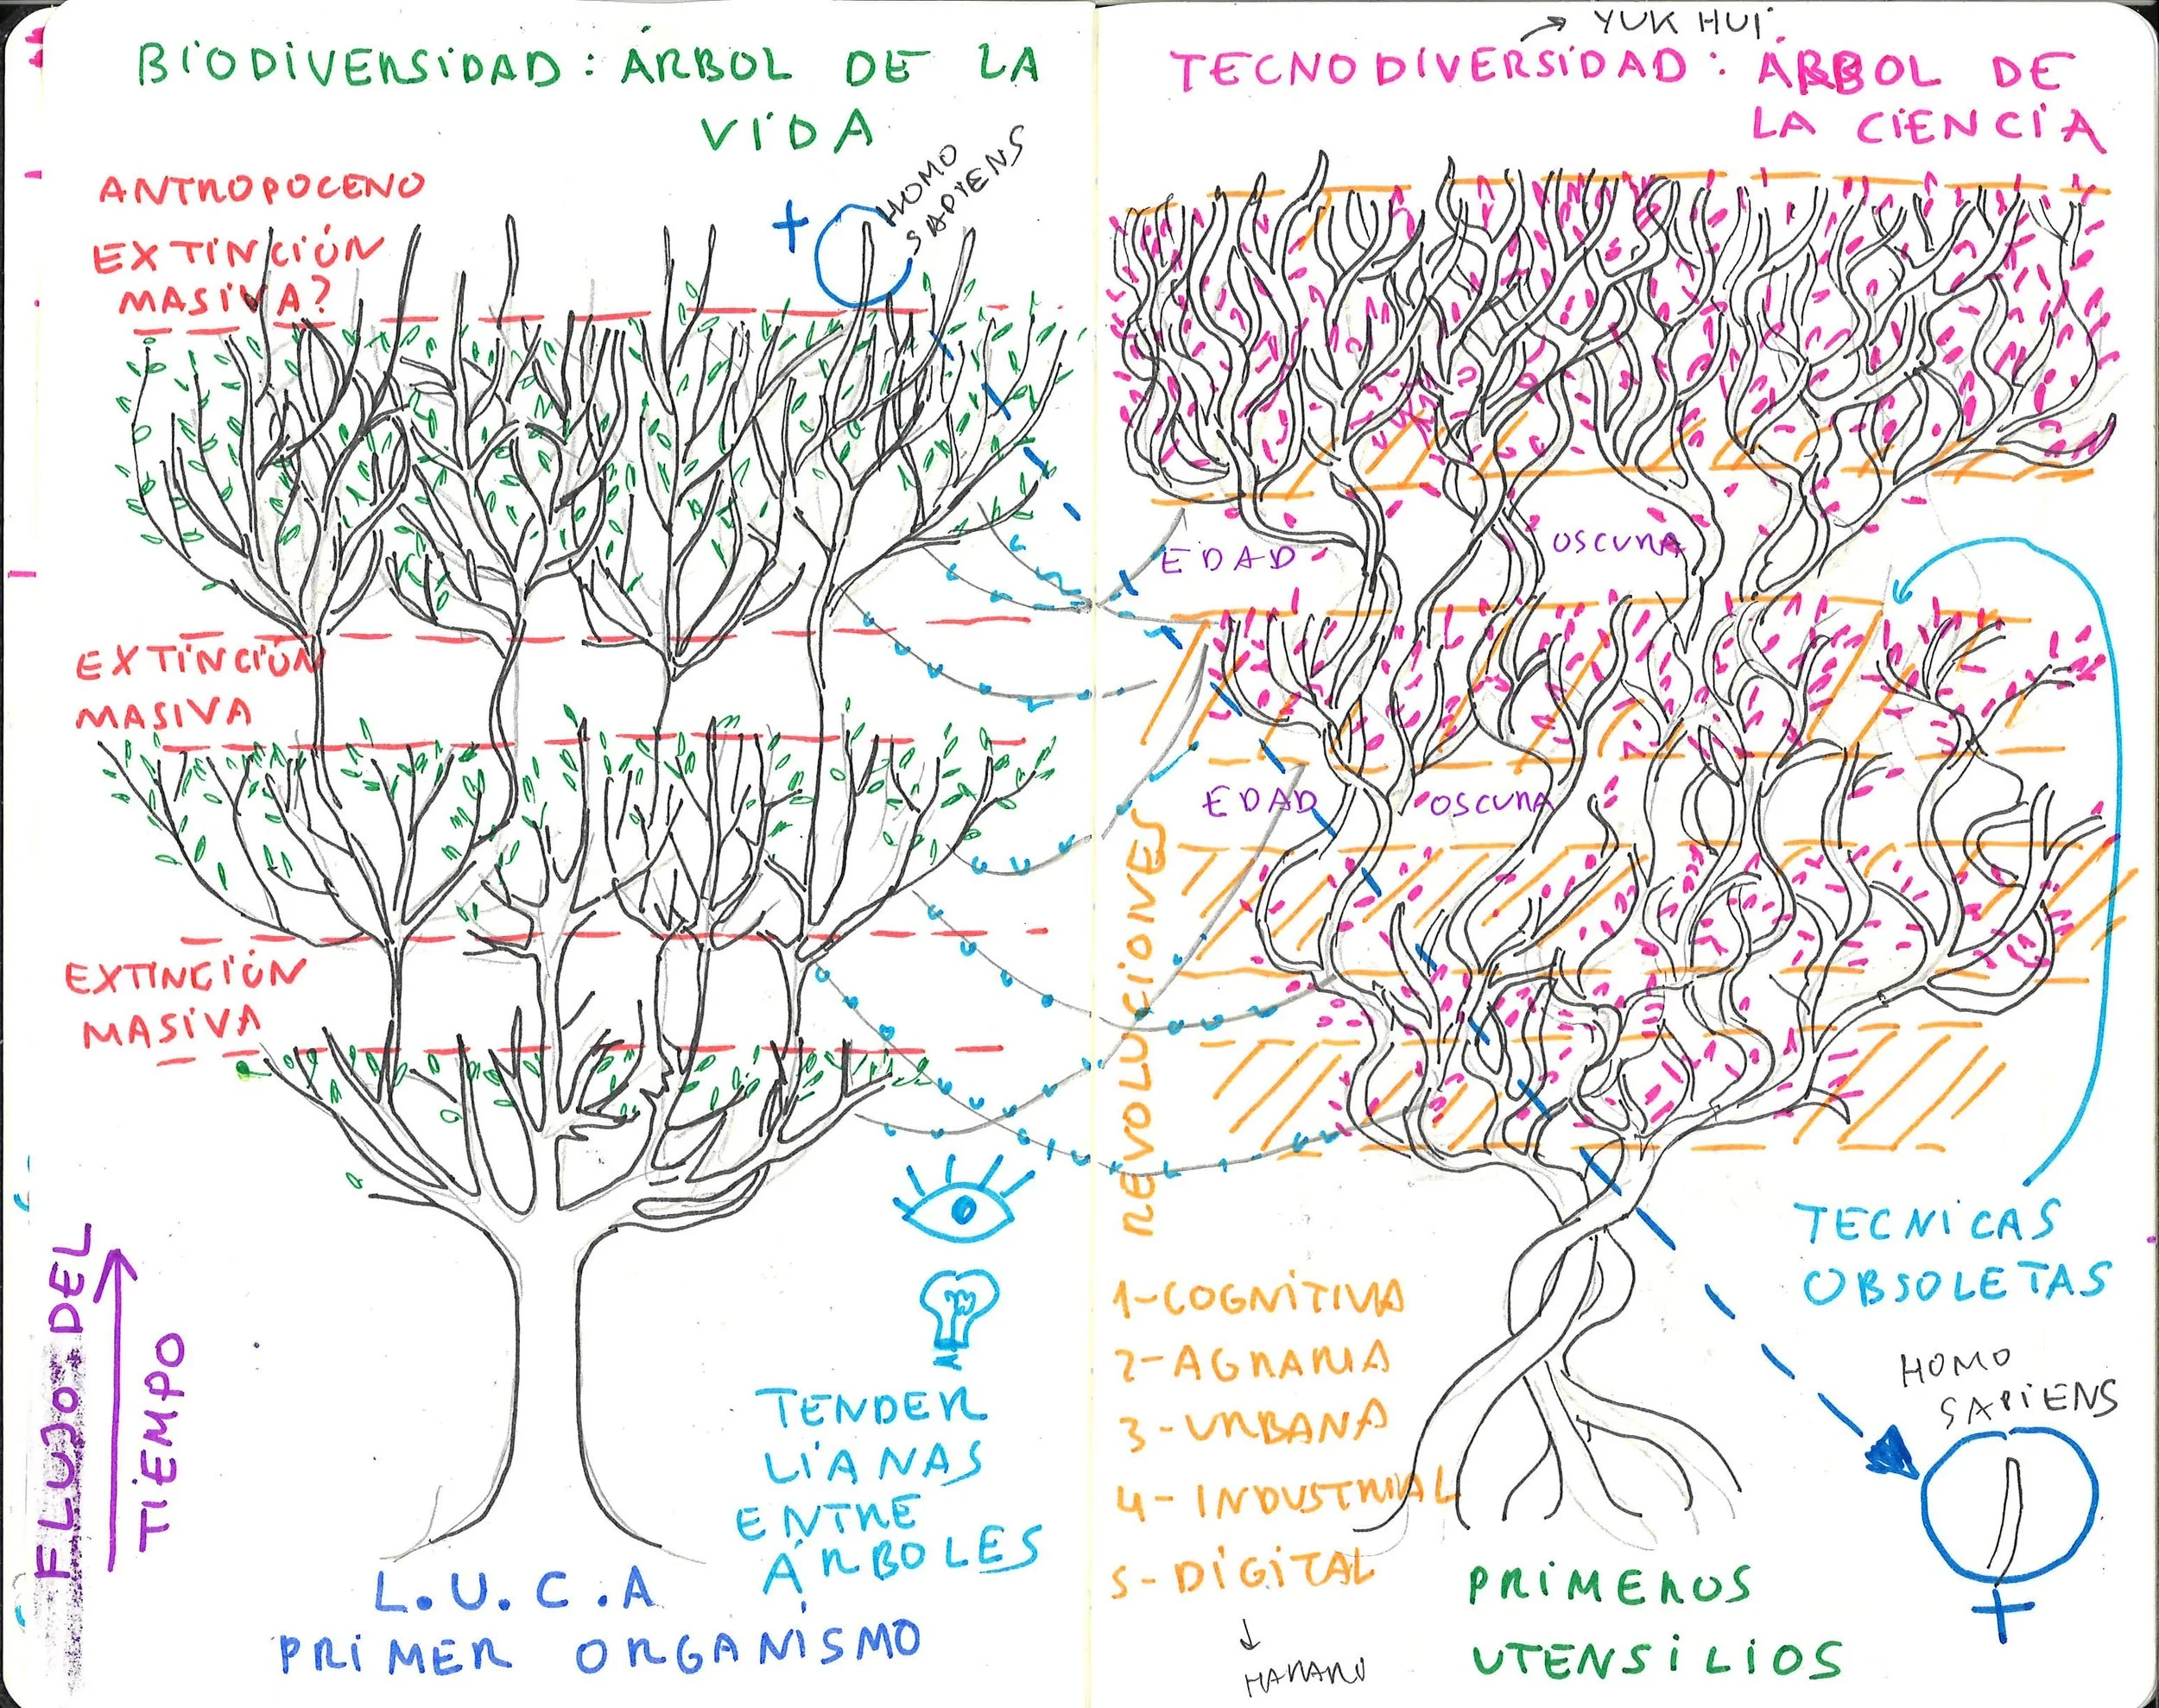 BIODIVERSIDAD: ÁRBOL DE LA
VIDA
ANTROPOCENO
EXTINCIÓN
MASIVA?
+
HOMO
SAPIENS
EXTINCIÓN
MASIVA
EXTINCIÓN
MASIVA
FLUJO DEL
TIEMPO
TENDER
LIANAS
ENTRE
ÁRBOLES
L.U.C.A
PRIMER ORGANISMO
→ YUK HUI
TECNODIVERSIDAD: ÁRBOL DE
LA CIENCIA
EDAD OSCURA
EDAD OSCURA
REVOLUCIONES
1-COGNITIVA
2-AGRARIA
3-URBANA
4-INDUSTRIAL
5-DIGITAL
↓
HARARI
TECNICAS
OBSOLETAS
HOMO
SAPIENS
+
PRIMEROS
UTENSILIOS